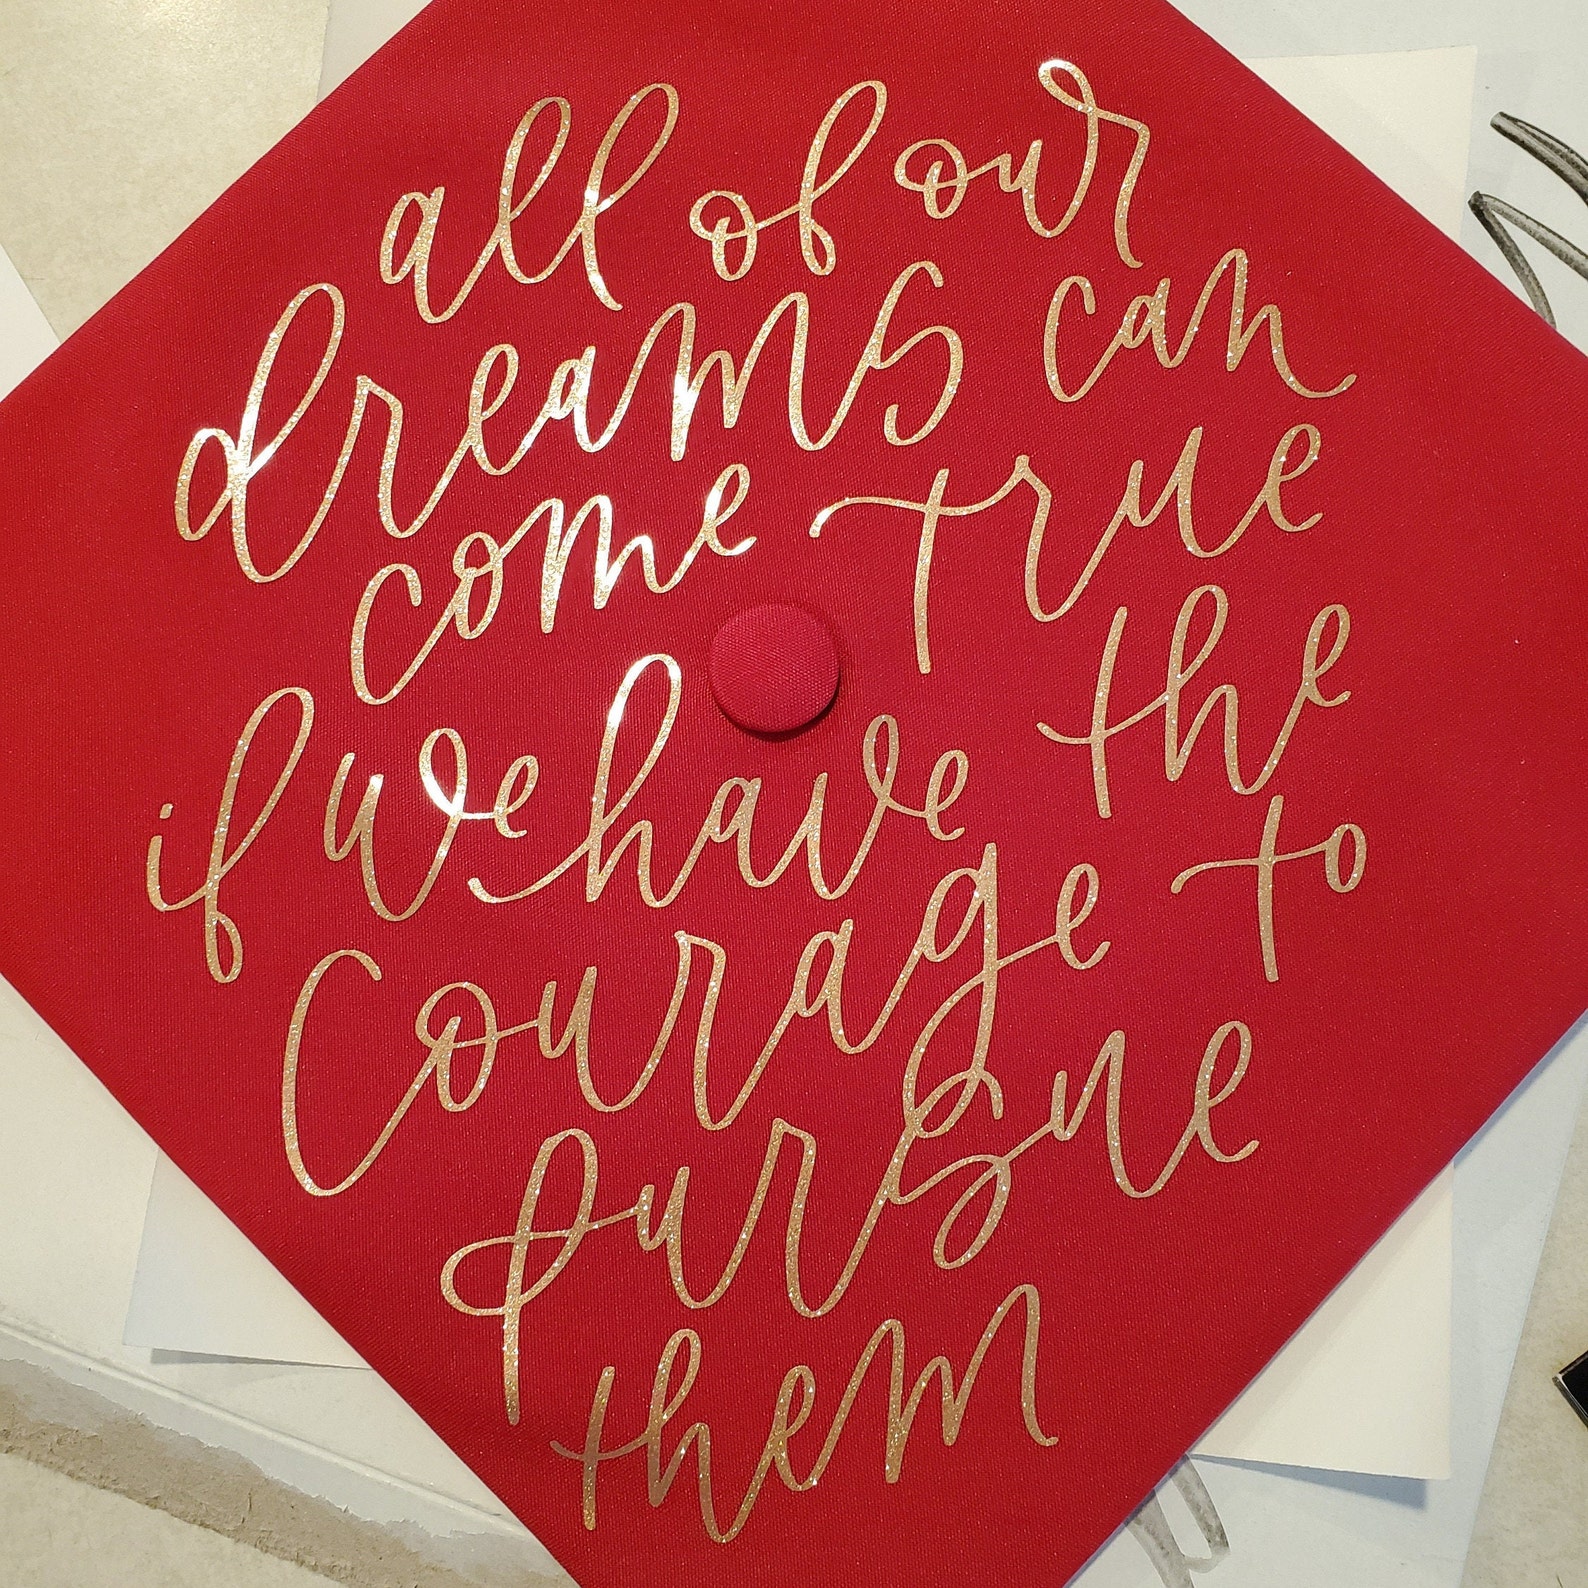 all of our
dreams can
come true
if we have the
courage to
pursue
them